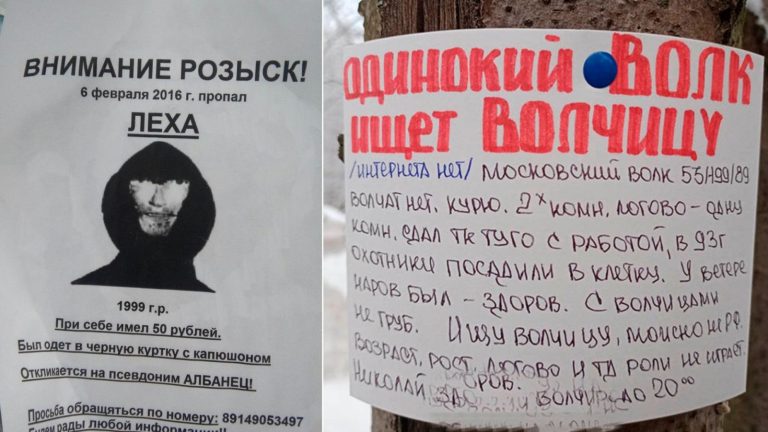 ВНИМАНИЕ РОЗЫСК!
6 февраля 2016 г. пропал
ЛЕХА
1999 г.р.
При себе имел 50 рублей.
Был одет в черную куртку с капюшоном
Откликается на псевдоним АЛБАНЕЦ!
Просьба обращаться по номеру: 89149053497
Будем рады любой информации!!
ОДИНОКИЙ ВОЛК
ИЩЕТ ВОЛЧИЦУ
/ИНТЕРНЕТА НЕТ/ МОСКОВСКИЙ ВОЛК 53Н99/89
ВОЛЧАТ НЕТ. КУРЮ. 2х КОМН. ЛОГОВО – ОДНУ
КОМН. СДАЛ ТК ТУГО С РАБОТОЙ, В 93г
ОХОТНИКИ ПОСАДИЛИ В КЛЕТКУ. У ВЕТЕРЕ
НАРОВ БЫЛ – ЗДОРОВ. С ВОЛЧИЦАМИ
НЕ ГРУБ. ИЩУ ВОЛЧИЦУ, МОЖНО НЕ РФ.
ВОЗРАСТ, РОСТ, ЛОГОВО И ТД РОЛИ НЕ ИГРАЕТ.
НИКОЛАЙ ДО 20⁰⁰